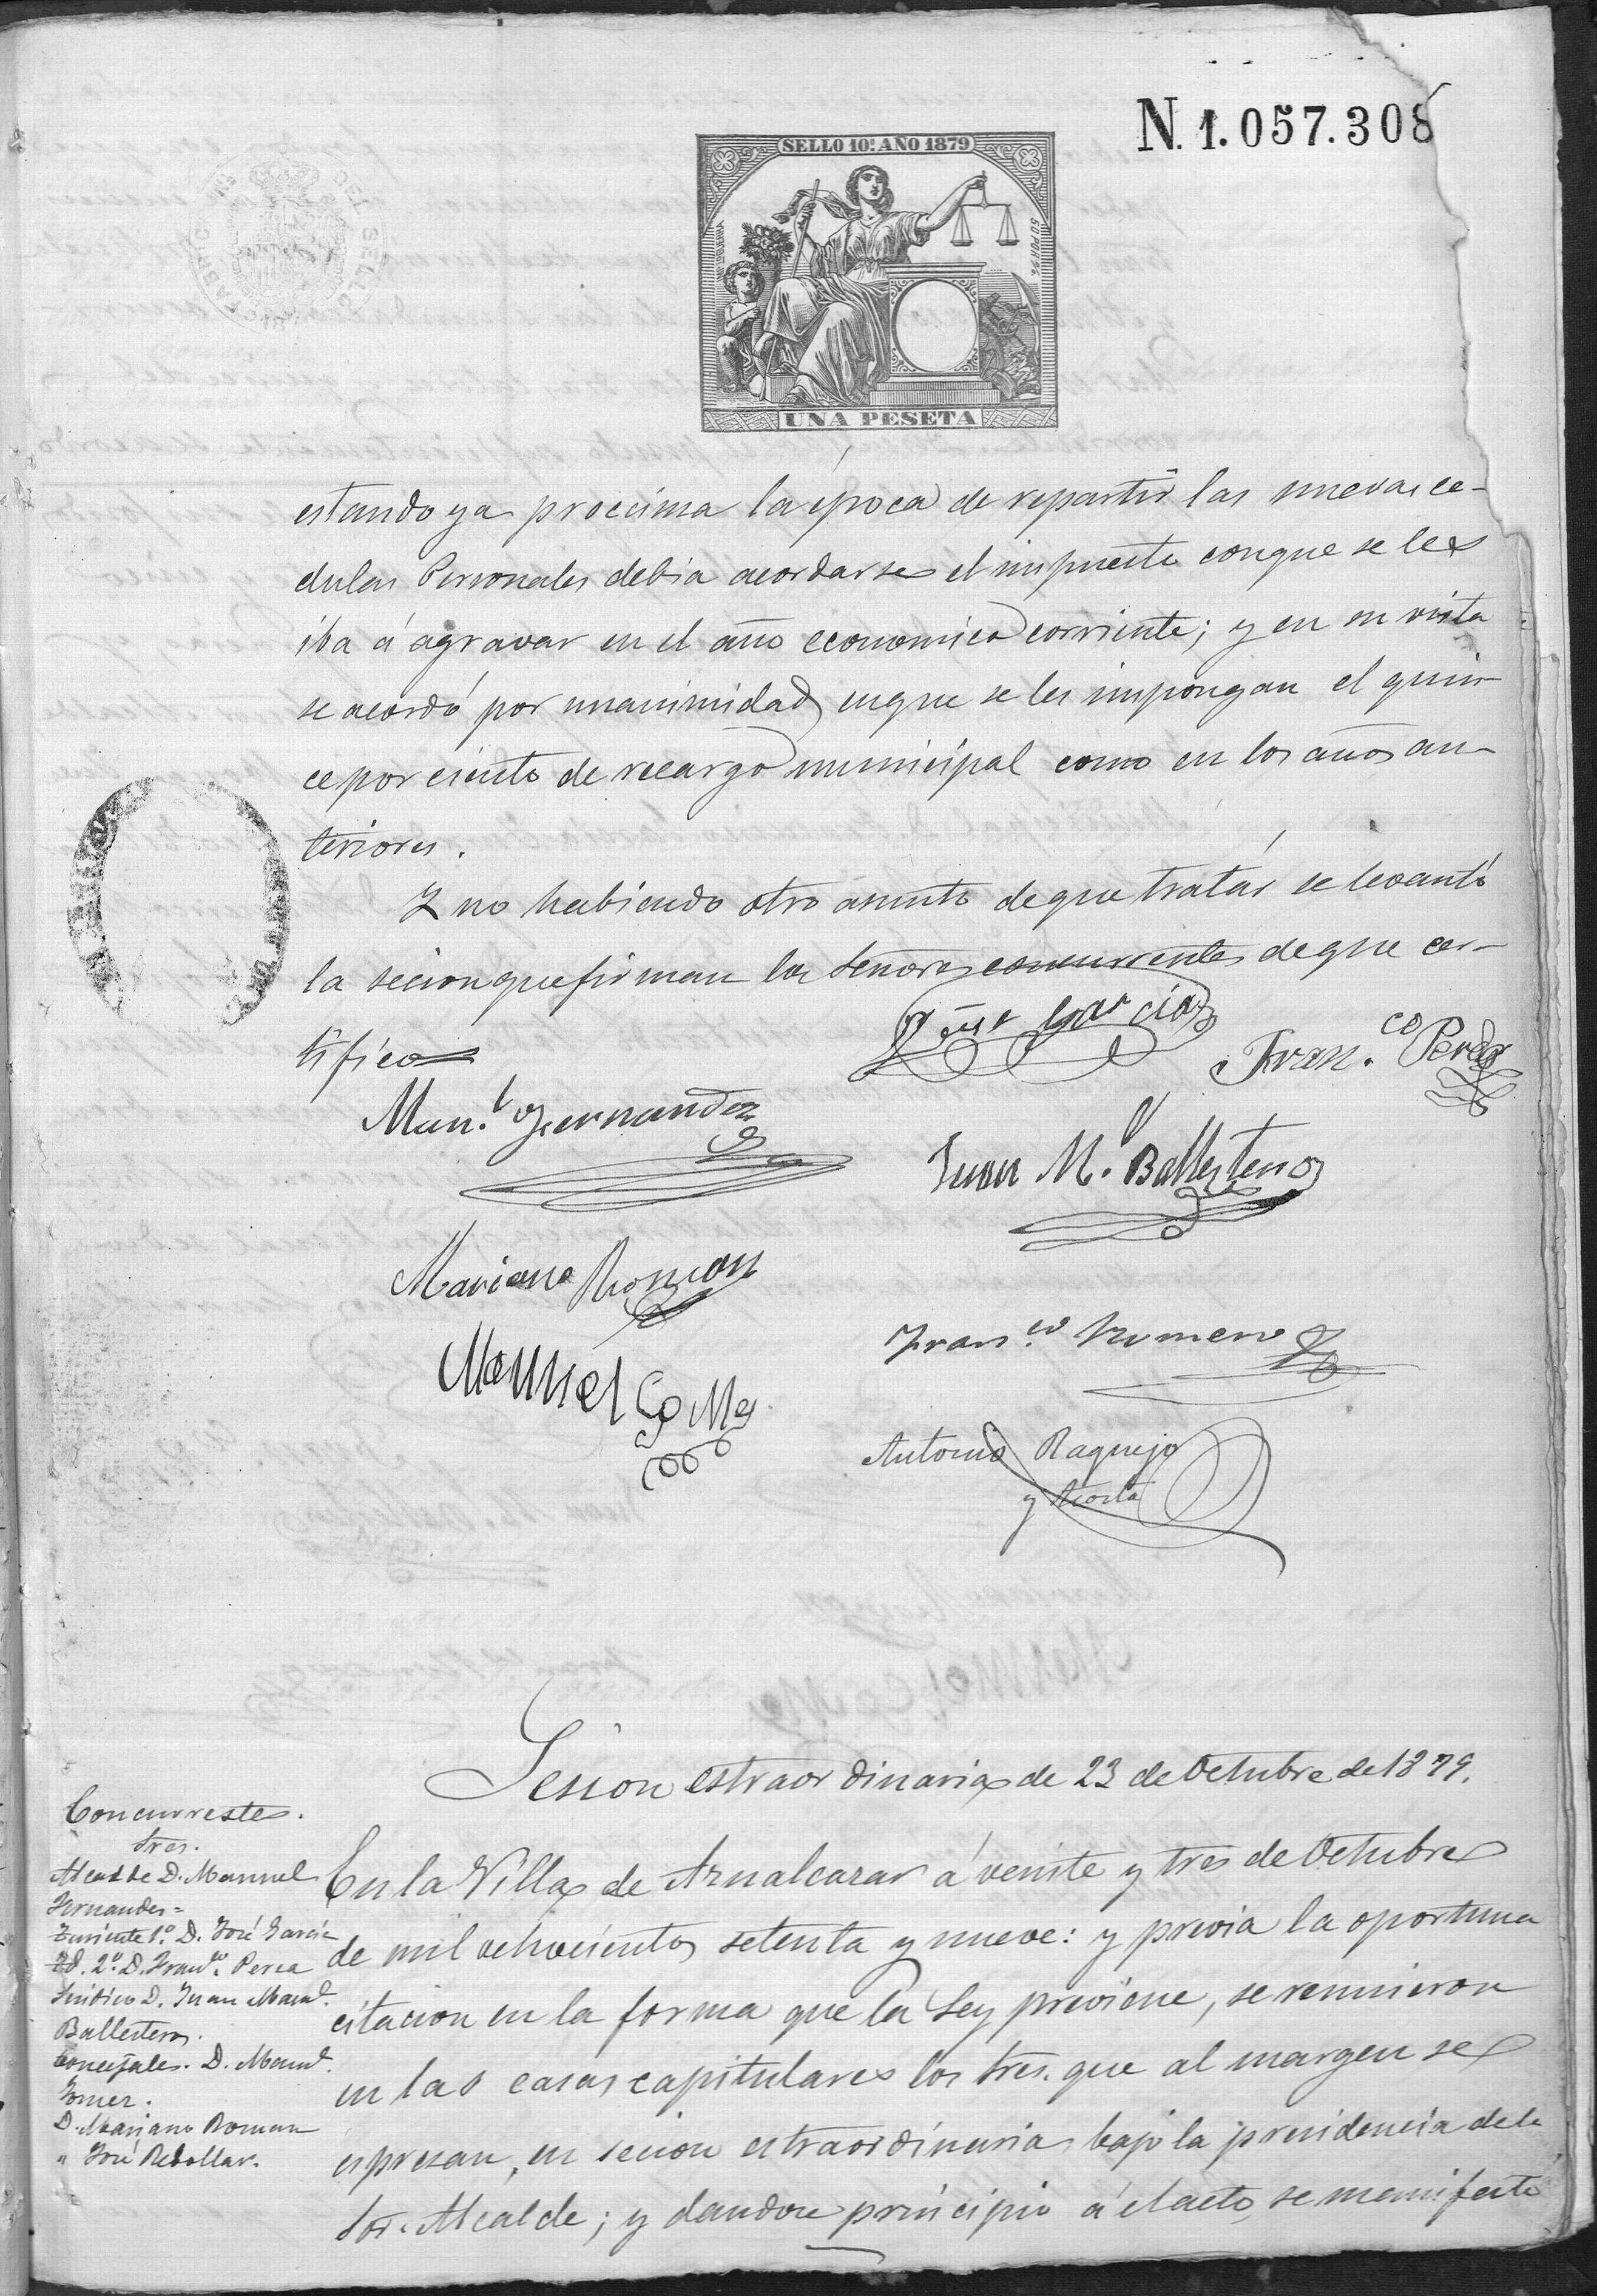 N. 1.057.308
SELLO 10º AÑO 1879
UNA PESETA
estando ya procsima la época de repartir las nuevas ce-
dulas Personales debia acordarse el impuesto conque se les
iba á agravar en el año economico corriente; y en su vista
se acordó por unanimidad en que se les impongan el quin-
ce por ciento de recargo municipal como en los años an-
teriores.
Y no habiendo otro asunto de que tratár se levantó
la secion que firman los Señores concurrentes de que cer-
tifico
José Garcia
Fran.co Perea
Man.l Fernandez
Juan M.l Ballesteros
Mariano Roman
Fran.co Romero
Manuel Gomez
Antonio Raquejo
y Acosta
Sesion estraordinaria de 23 de Octubre de 1879.
Concurrestes.
Sres.
Alcalde D. Manuel
Fernandez=
Teniente 1.º D. José Garcia
Id. 2.º D. Fran.co Perea
Sindico D. Juan Man.l
Ballesteros.
Concejales. D. Man.l
Gomez.
D. Mariano Roman
" José Rebollar.
En la Villa de Aznalcazar á veinte y tres de Octubre
de mil ochocientos setenta y nueve: y previa la oportuna
citacion en la forma que la Ley previene, se reunieron
en las casas capitulares los Sres. que al margen se
espresan, en secion estraordinaria bajo la presidencia de le
Sor. Alcalde; y dandose principio á el acto, se manifestó